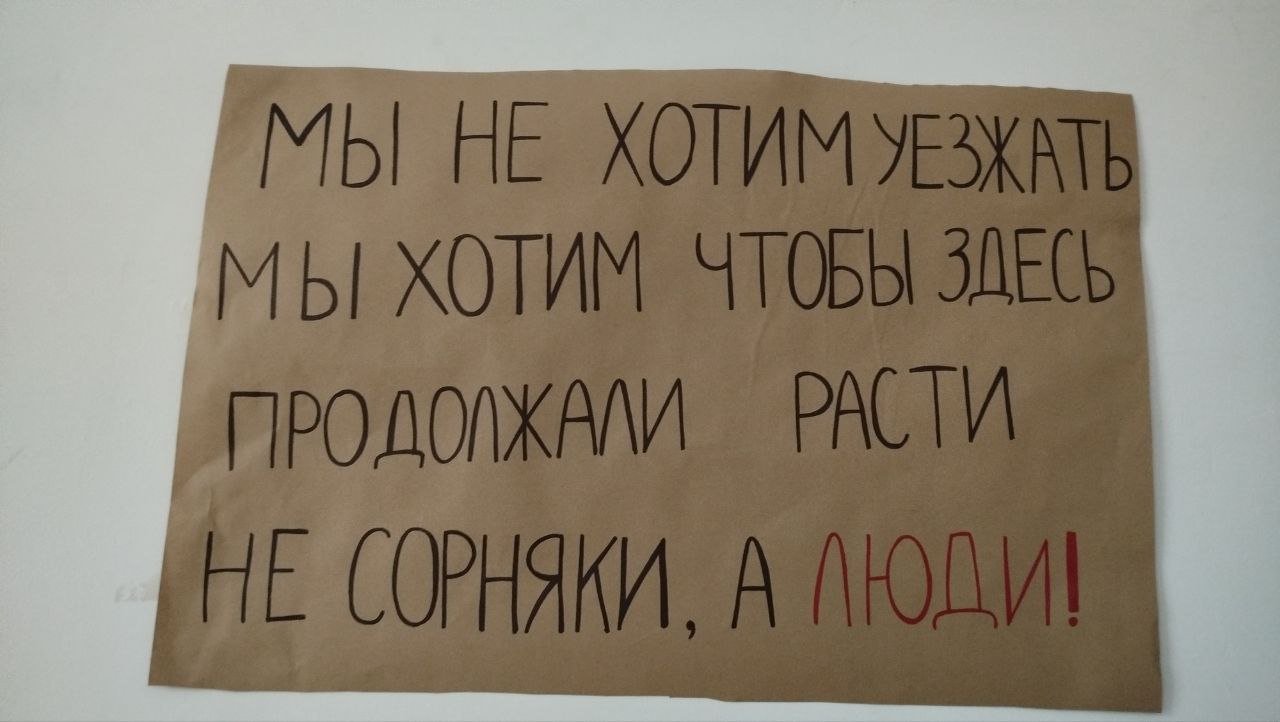 МЫ НЕ ХОТИМ УЕЗЖАТЬ
МЫ ХОТИМ ЧТОБЫ ЗДЕСЬ
ПРОДОЛЖАЛИ РАСТИ
НЕ СОРНЯКИ, А ЛЮДИ!